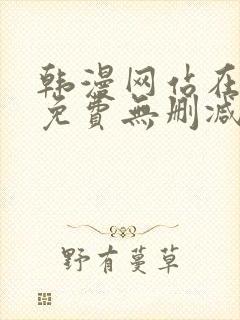 韩漫网站在
免費無删减
野有蔓草